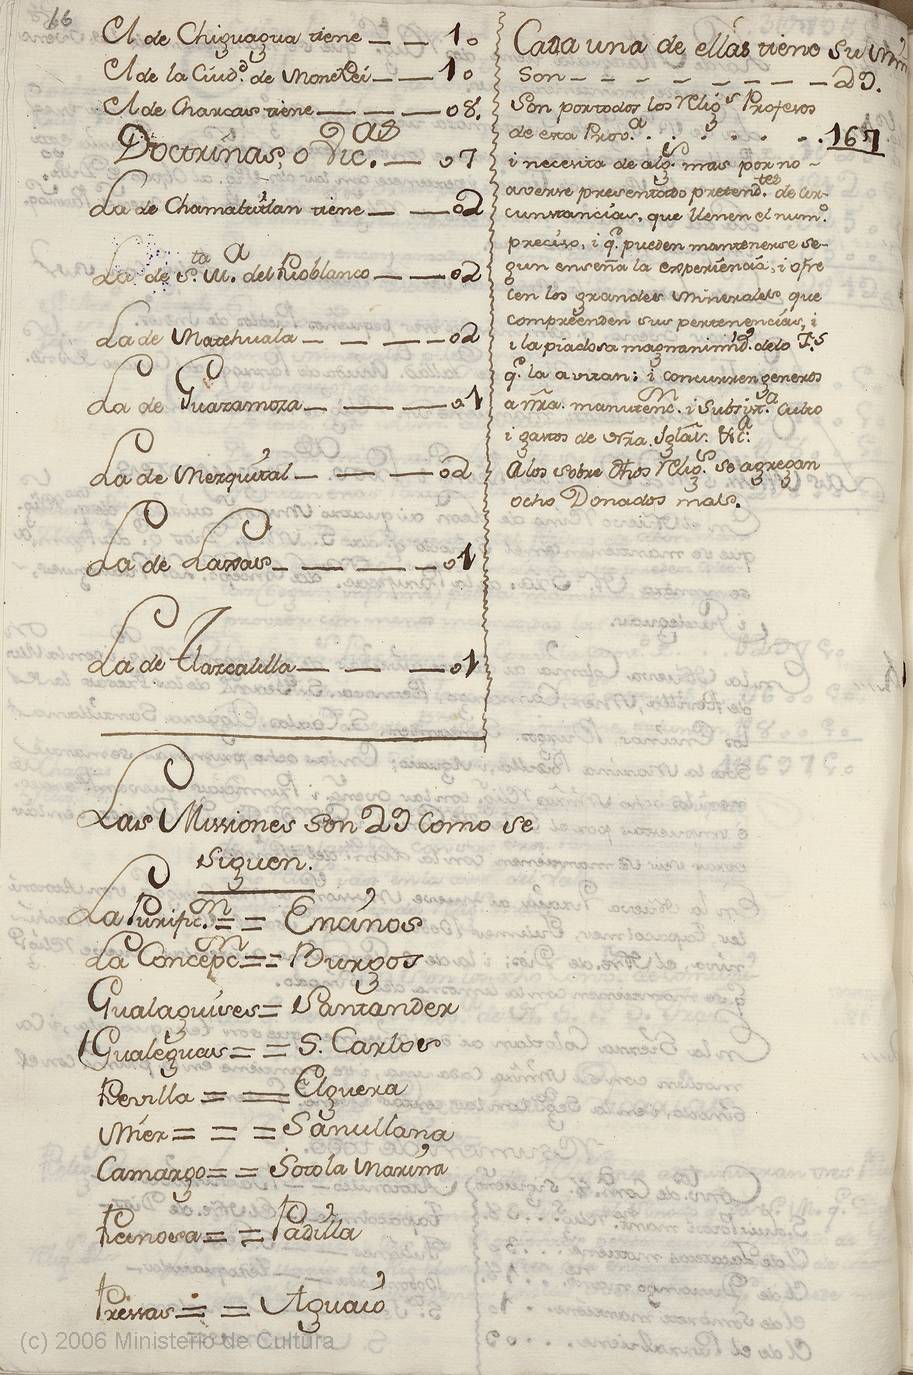 66
El de Chiguagua tiene — — 10
El de la Ciud.d de Monterrei — — 10
El de Charcas tiene — — — 08.
Doctrinas, o Vic.as — 07
La de Chamatitlan tiene — — 02
La de S.ta M.a del Rioblanco — — 02
La de Matehuala — — — — 02
La de Guazamota — — — — 01
La de Mezquital — — — — 02
La de Lassas — — — — 01
La de Tlaxcalilla — — — — 01
Las Missiones son 29 como se
siguen.
La Purific.n = = Encinos
La Concepc.n = = Burgos
Gualaguises = Santander
Gualeguas = = S. Carlos
Revilla = = Elguera
Mier = = = Santillana
Camargo = = Sotola Marina
Reinosa = = Padilla
Presas = = Aguaió
Cada una de ellas tiene su
Son - - - - - - - 29.
Son por todos los Relig.s Profesos
de esta Prov.a . . . . . . 167
i necesita de alg.s mas por no
averse presentado pretend.tes de cir-
cunstancias, que llenen el num.o
preciso, i q.e pueden mantenerse se-
gun enseña la experiencia, i ofre
cen los grandes Minerales que
compreenden sus pertenencias, i
i la piadosa magnanimid.d de lo
q.e la avitan; i concurren generos
a ñra. manutenc.n i subsist.a Culto
i gastos de ñra. Iglãs. &c.a
A los sobre dhos Relig.s se agregan
ocho Donados mas.
(c) 2006 Ministerio de Cultura